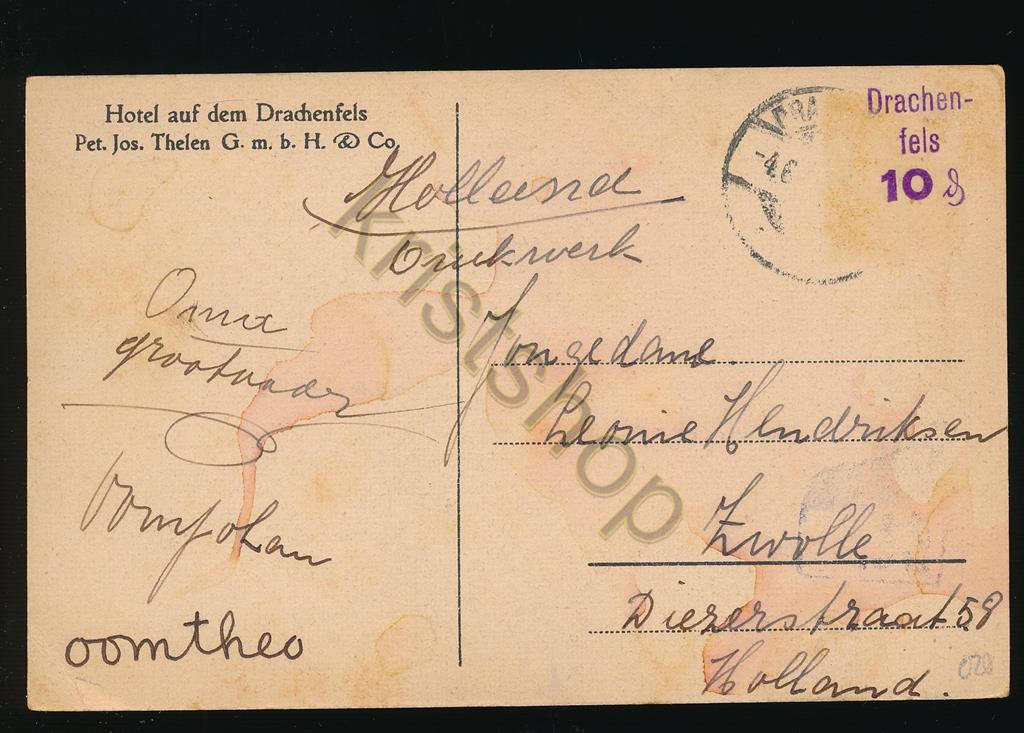 Hotel auf dem Drachenfels
Pet. Jos. Thelen G. m. b. H. & Co.
Drachen-
fels
10 ₰
-4.6
Holland
Drukwerk
Oma
grootvader
Oomjohan
oomtheo
Jongedame
Leonie Hendriksen
Zwolle
Diezerstraat 58
Holland.
Kristshop